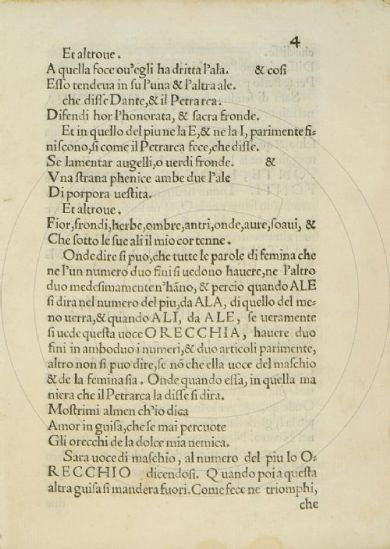 4
Et altroue.
A quella foce ou'egli ha dritta l'ala. & cosi
Esso tendeua in su l'una & l'altra ale.
che disse Dante, & il Petrarca.
Difendi hor l'honorata, & sacra fronde.
Et in quello del piu ne la E, & ne la I, parimente fi-
niscono, si come il Petrarca fece, che disse.
Se lamentar augelli, o uerdi fronde. &
Vna strana phenice ambe due l'ale
Di porpora uestita.
Et altroue.
Fior, frondi, herbe, ombre, antri, onde, aure, soaui, &
Che sotto le sue ali il mio cor tenne.
Onde dire si puo, che tutte le parole di femina che
ne l'un numero duo fini si uedono hauere, ne l'altro
duo medesimamente n'hãno, & percio quando ALE
si dira nel numero del piu, da ALA, di quello del me-
no uerra, & quando ALI, da ALE, se ueramente
si uede questa uoce ORECCHIA, hauere duo
fini in amboduo i numeri, & duo articoli parimente,
altro non si puo dire, se nõ che ella uoce del maschio
& de la femina sia. Onde quando essa, in quella ma
niera che il Petrarca la disse si dira.
Mostrimi almen ch'io dica
Amor in guisa, che se mai percuote
Gli orecchi de la dolce mia nemica.
Sara uoce di maschio, al numero del piu lo O-
RECCHIO dicendosi. Quando poi a questa
altra guisa si mandera fuori. Come fece ne triomphi,
che